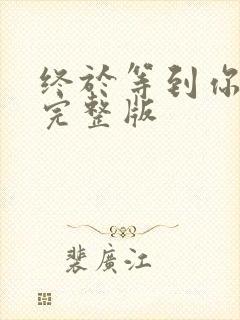 终於等到你
完整版
裴廣江